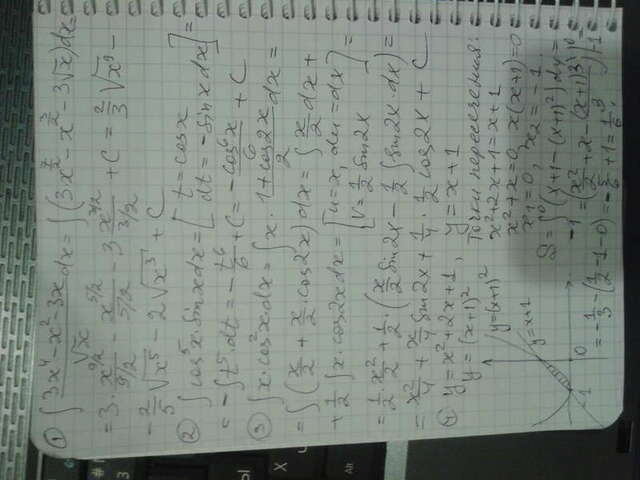 ① ∫ (3x⁴ - x³ - 3x)/√x dx = ∫(3x^(7/2) - x^(5/2) - 3√x)dx =
= 3 · x^(9/2)/(9/2) - x^(5/2)/(5/2) - 3 x^(3/2)/(3/2) + C = 2/3 √x⁹ -
- 2/5 √x⁵ - 2√x³ + C
② ∫cos⁵x · sinxdx = [t = cosx
dt = -sinxdx] =
= -∫t⁵ · dt = - t⁶/6 + C = - cos⁶x/6 + C
③ ∫x · cos²xdx = ∫x · (1+cos2x)/2 dx =
= ∫(x/2 + x/2 · cos2x)dx = ∫ x/2 dx +
+ 1/2 ∫x · cos2xdx = [u = x, du = dx
V = 1/2 sin2x] =
= 1/2 · x²/2 + 1/2 · (x/2 sin2x - 1/2 ∫sin2xdx) =
= x²/4 + x/4 sin2x + 1/4 · 1/2 cos2x + C
④ y = x²+2x+1, y = x+1
y = (x+1)²
Точки пересечения:
x²+2x+1 = x+1
x²+x = 0, x(x+1) = 0
x₁ = 0, x₂ = -1
y=(x+1)²
y=x+1
-1
0